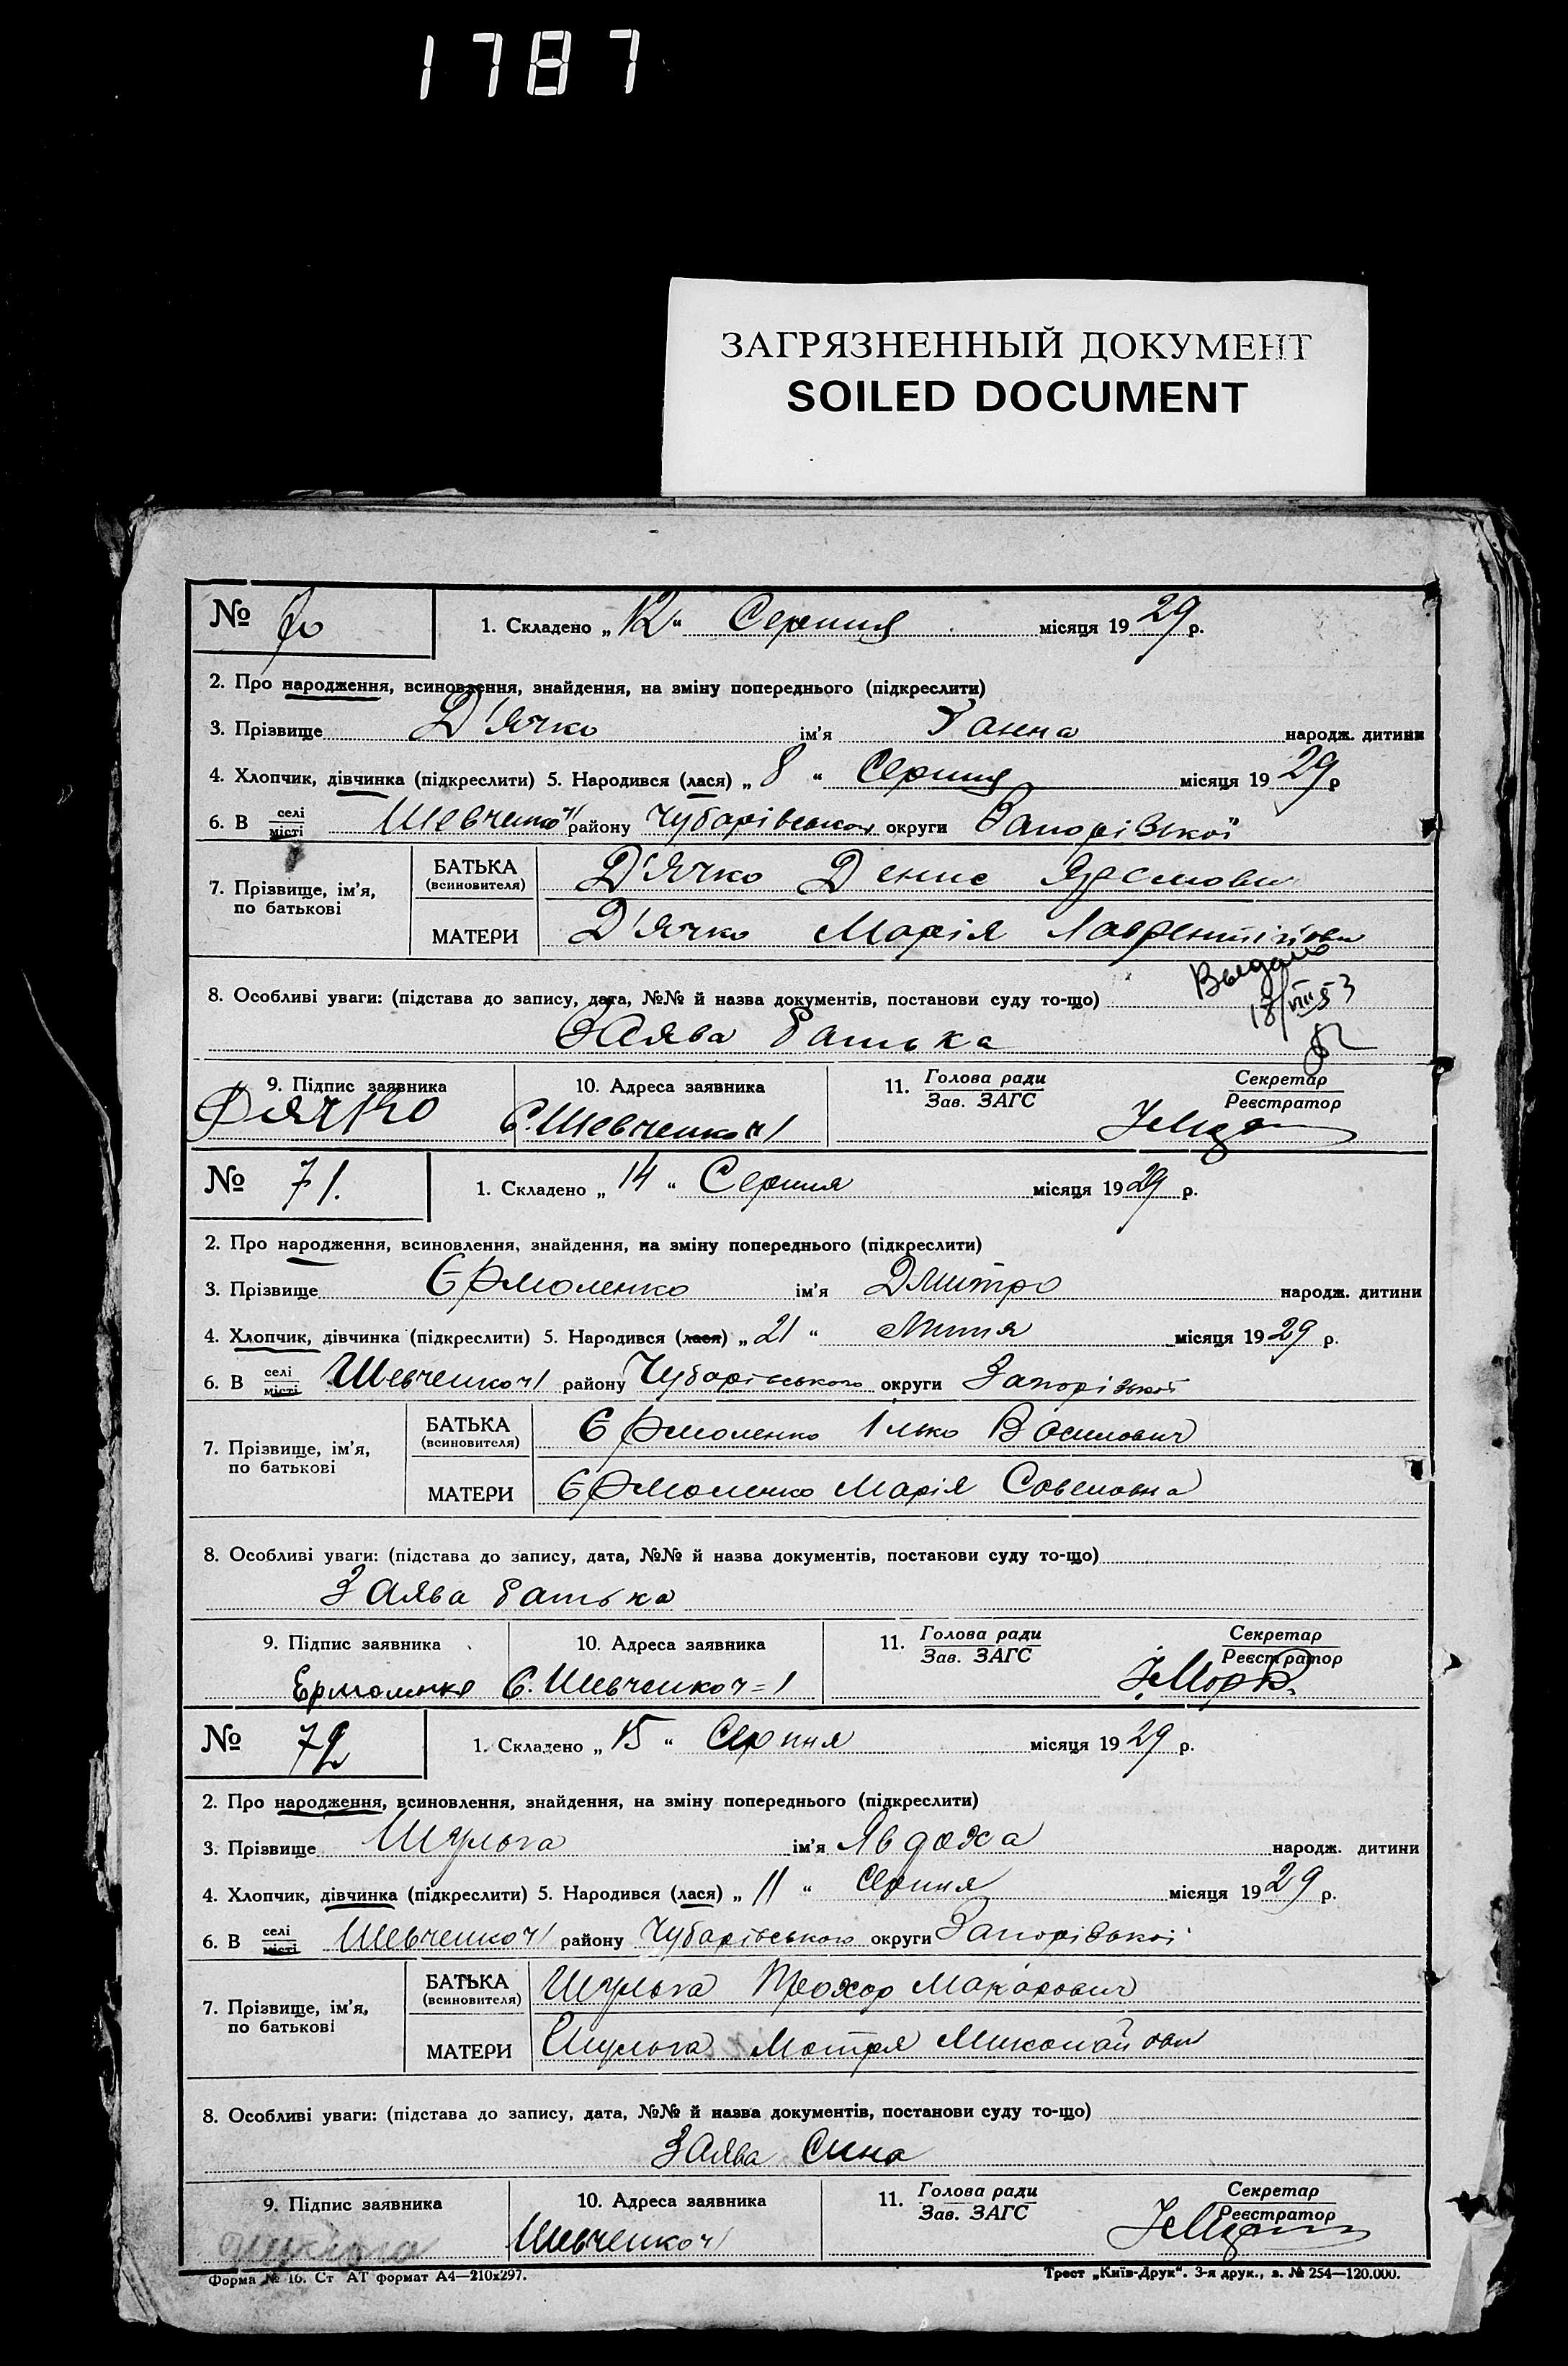 1787
ЗАГРЯЗНЕННЫЙ ДОКУМЕНТ
SOILED DOCUMENT
№ 70
1. Складено „ 12 “ Серпня місяця 19 29 р.
2. Про народження, всиновлення, знайдення, на зміну попереднього (підкреслити)
3. Прізвище Д'ячко ім'я Ганна народж. дитини
4. Хлопчик, дівчинка (підкреслити) 5. Народився (лася) „ 8 “ Серпня місяця 19 29 р
6. В селі місті Шевченко ч1 району Чубарівського округи Запорізької
7. Прізвище, ім'я, по батькові
БАТЬКА (всиновителя) Д'ячко Денис
МАТЕРИ Д'ячко Марія Лаврентіївн
8. Особливі уваги: (підстава до запису, дата, №№ й назва документів, постанови суду то-що) Выдано
18/VIII 53
Заява батька
9. Підпис заявника 10. Адреса заявника 11. Голова ради Зав. ЗАГС Секретар Реєстратор
Дячко С. Шевченко ч1
№ 71.
1. Складено „ 14 “ Серпня місяця 19 29 р.
2. Про народження, всиновлення, знайдення, на зміну попереднього (підкреслити)
3. Прізвище Єрмоленко ім'я Дмитро народж. дитини
4. Хлопчик, дівчинка (підкреслити) 5. Народився (лася) „ 21 “ Липня місяця 19 29 р.
6. В селі місті Шевченко ч1 району Чубарівського округи Запорізької
7. Прізвище, ім'я, по батькові
БАТЬКА (всиновителя) Єрмоленко Ілько Василович
МАТЕРИ Єрмоленко Марія Савеловна
8. Особливі уваги: (підстава до запису, дата, №№ й назва документів, постанови суду то-що)
Заява батька
9. Підпис заявника 10. Адреса заявника 11. Голова ради Зав. ЗАГС Секретар Реєстратор
Ермоленко С. Шевченко ч=1
№ 72
1. Складено „ 15 “ Серпня місяця 19 29 р.
2. Про народження, всиновлення, знайдення, на зміну попереднього (підкреслити)
3. Прізвище Шульга ім'я Явдоха народж. дитини
4. Хлопчик, дівчинка (підкреслити) 5. Народився (лася) „ 11 “ Серпня місяця 19 29 р.
6. В селі місті Шевченко ч1 району Чубарівського округи Запорізької
7. Прізвище, ім'я, по батькові
БАТЬКА (всиновителя) Шульга Прохор Макарович
МАТЕРИ Шульга Мотря Миколаївн
8. Особливі уваги: (підстава до запису, дата, №№ й назва документів, постанови суду то-що)
Заява Сина
9. Підпис заявника 10. Адреса заявника 11. Голова ради Зав. ЗАГС Секретар Реєстратор
Шульга Шевченко ч1
Форма № 16. Ст АТ формат А4—210х297. Трест „Київ-Друк“. 3-я друк., з. № 254—120.000.